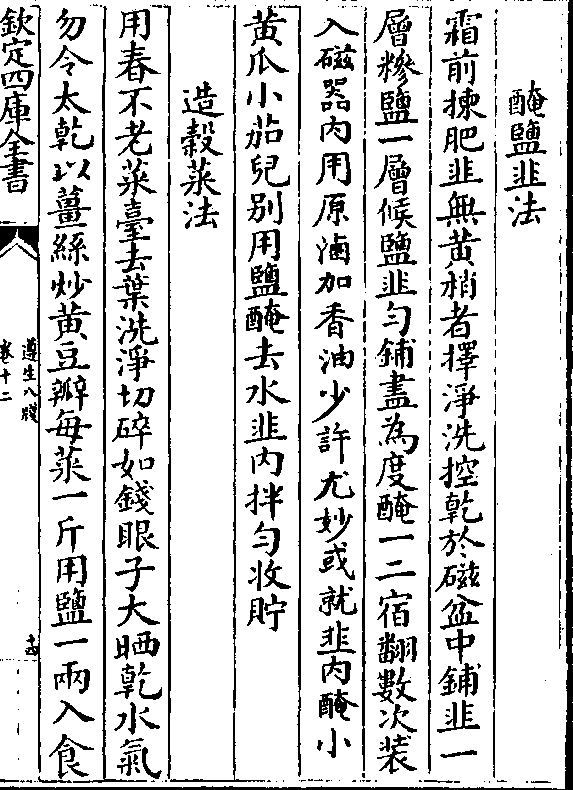 醃鹽韭法
霜前揀肥韭無黄梢者擇淨洗控乾於磁盆中鋪韭一
層糝鹽一層候鹽韭匀鋪盡為度醃一二宿翻數次装
入磁器内用原滷加香油少許尤妙或就韭内醃小
黄瓜小茄兒别用鹽醃去水韭内拌匀收貯
造穀菜法
用春不老菜臺去葉洗淨切碎如錢眼子大晒乾水氣
勿令太乾以薑絲炒黄豆瓣每菜一斤用鹽一兩入食
欽定四庫全書
遵生八牋
卷十二
十四